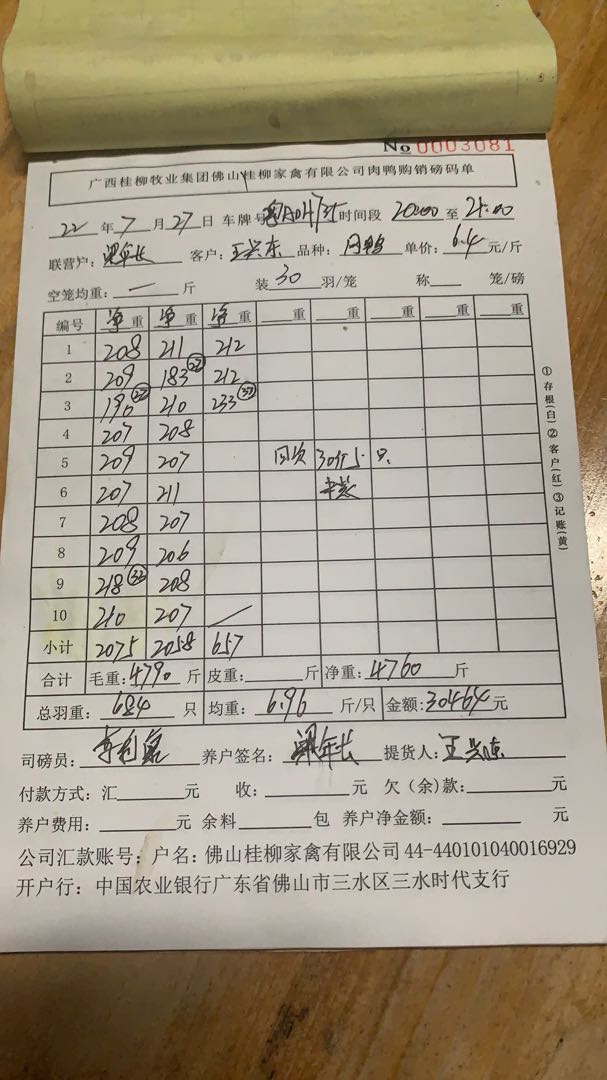 No 0003081
广西桂柳牧业集团佛山桂柳家禽有限公司肉鸭购销磅码单
22 年 7 月 27 日 车牌号 时间段 20:00 至 21:00
联营户: 梁年长 客户: 王兴东 品种: 单价: 6.4 元/斤
空笼均重: 一 斤 装 30 羽/笼 称 笼/磅
编号 净重 净重 净重 重 重 重 重 重
1 208 211 212
2 209 183 27 212
3 190 27 210 233 33
4 207 208
5 209 207 只
6 207 211
7 208 207
8 209 206
9 218 32 208
10 210 207
小计 2075 2058 657
合计 毛重: 4790 斤 皮重: 斤 净重: 4760 斤
总羽重: 684 只 均重: 6.96 斤/只 金额: 30464 元
司磅员: 养户签名: 梁年长 提货人: 王兴东
付款方式: 汇 元 收: 元 欠(余)款: 元
养户费用: 元 余料 包 养户净金额: 元
公司汇款账号: 户名: 佛山桂柳家禽有限公司 44-440101040016929
开户行: 中国农业银行广东省佛山市三水区三水时代支行
①存根(白)②客户(红)③记账(黄)